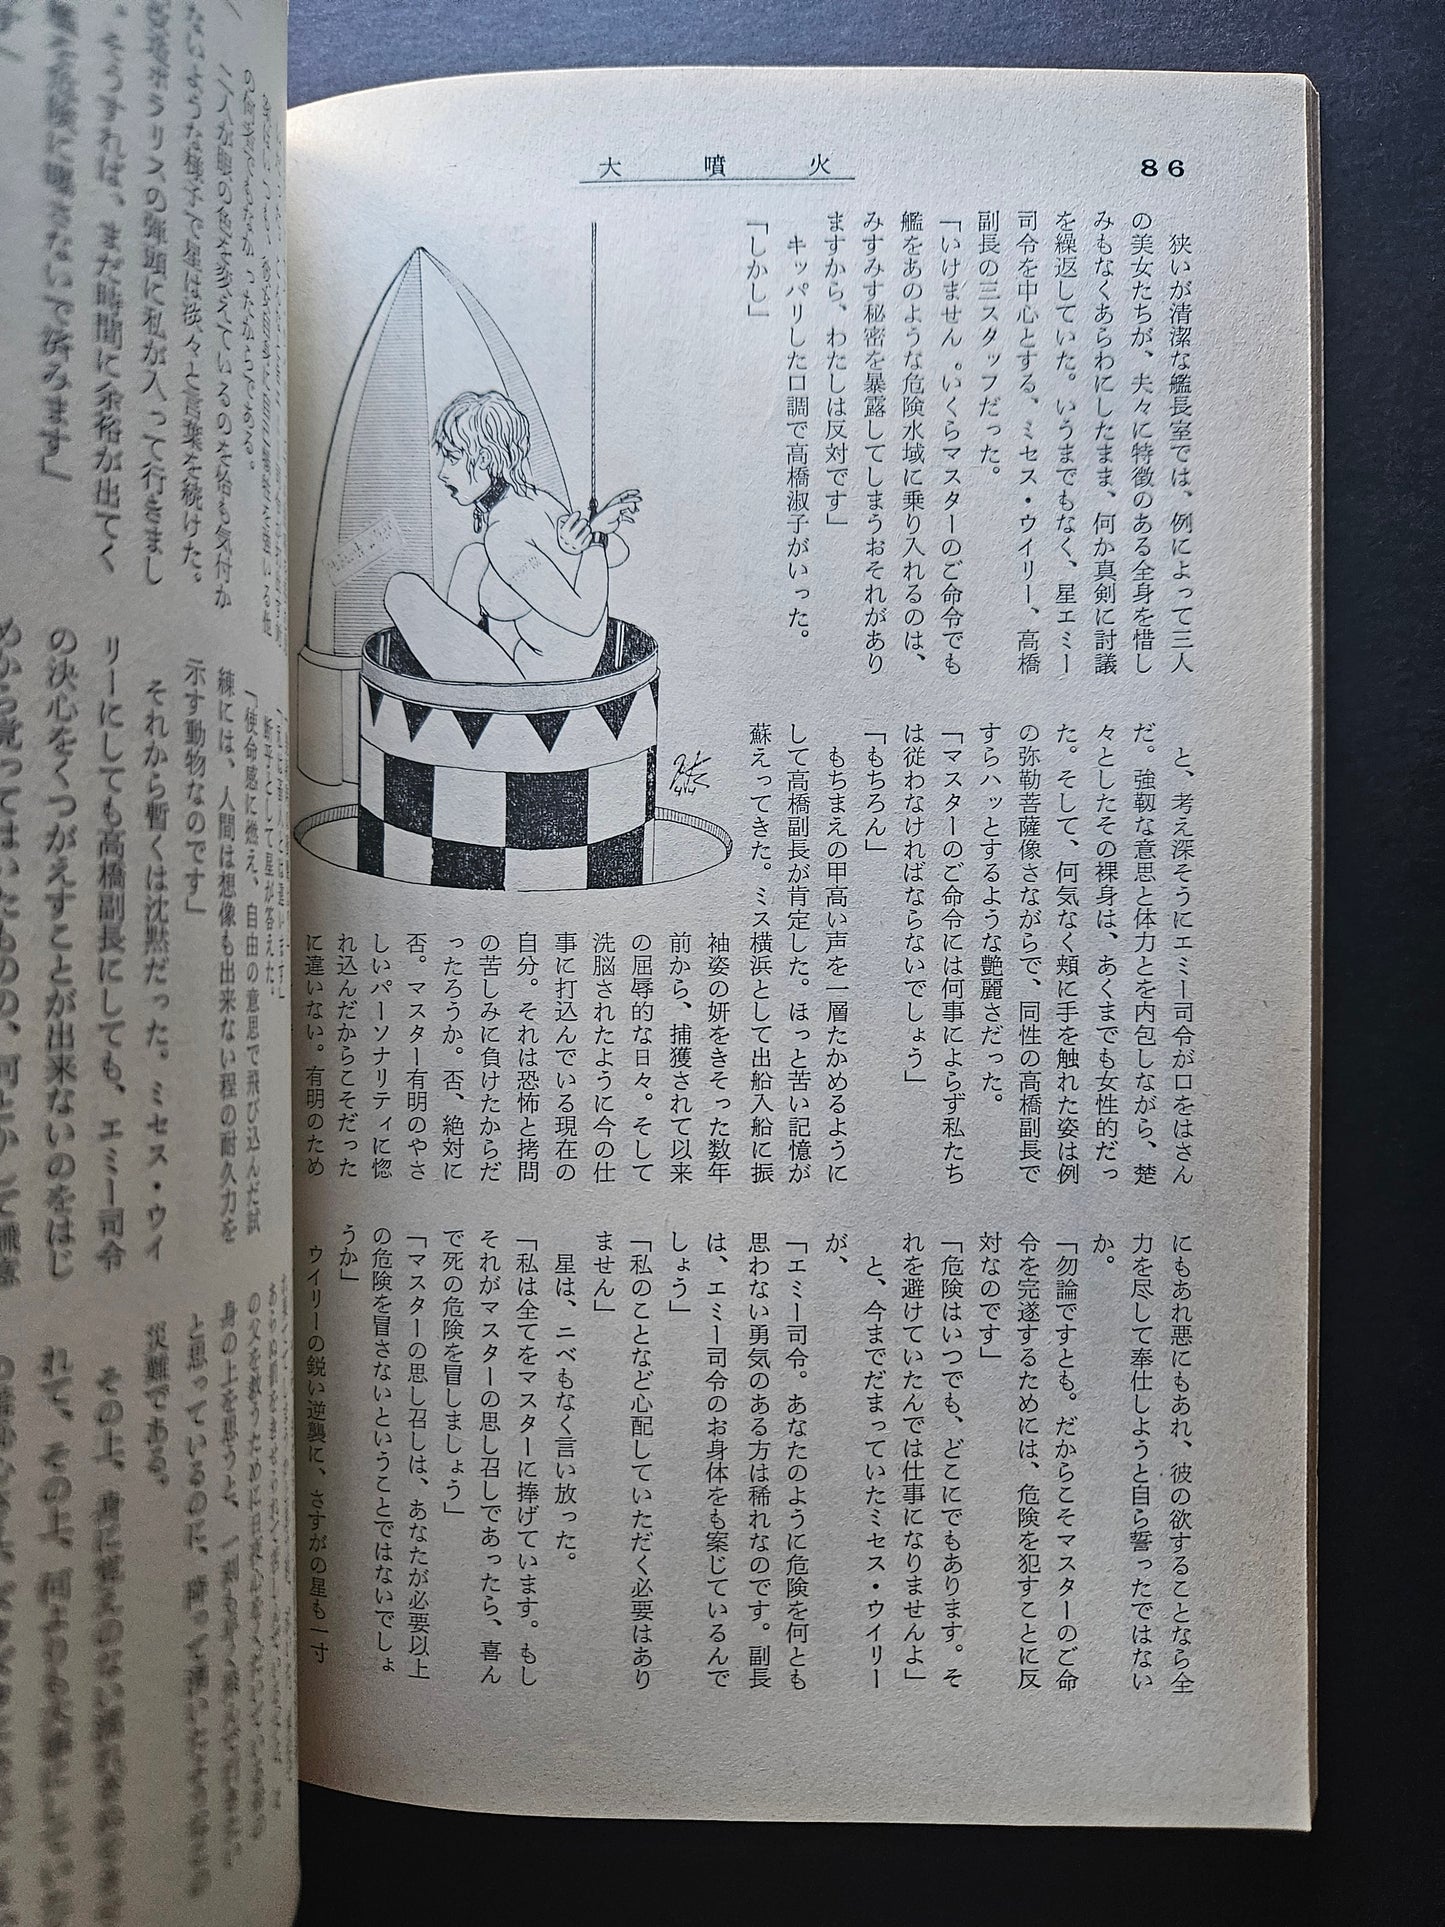 86
大噴火
狭いが清潔な艦長室では、例によって三人
の美女たちが、夫々に特徴のある全身を惜し
みもなくあらわにしたまま、何か真剣に討議
を繰返していた。いうまでもなく、星エミー
司令を中心とする、ミセス・ウイリー、高橋
副長の三スタッフだった。
「いけません。いくらマスターのご命令でも
艦をあのような危険水域に乗り入れるのは、
みすみす秘密を暴露してしまうおそれがあり
ますから、わたしは反対です」
キッパリした口調で高橋淑子がいった。
「しかし」
と、考え深そうにエミー司令が口をはさん
だ。強靱な意思と体力とを内包しながら、楚
々としたその裸身は、あくまでも女性的だっ
た。そして、何気なく頬に手を触れた姿は例
の弥勒菩薩像さながらで、同性の高橋副長で
すらハッとするような艶麗さだった。
「マスターのご命令には何事によらず私たち
は従わなければならないでしょう」
「もちろん」
もちまえの甲高い声を一層たかめるように
して高橋副長が肯定した。ほっと苦い記憶が
蘇えってきた。ミス横浜として出船入船に振
袖姿の妍をきそった数年
前から、捕獲されて以来
の屈辱的な日々。そして
洗脳されたように今の仕
事に打込んでいる現在の
自分。それは恐怖と拷問
の苦しみに負けたからだ
ったろうか。否、絶対に
否。マスター有明のやさ
しいパーソナリティに惚
れ込んだからこそだった
に違いない。有明のため
にもあれ悪にもあれ、彼の欲することなら全
力を尽して奉仕しようと自ら誓ったではない
か。
「勿論ですとも。だからこそマスターのご命
令を完遂するためには、危険を犯すことに反
対なのです」
「危険はいつでも、どこにでもあります。そ
れを避けていたんでは仕事になりませんよ」
と、今までだまっていたミセス・ウイリー
が、
「エミー司令。あなたのように危険を何とも
思わない勇気のある方は稀れなのです。副長
は、エミー司令のお身体をも案じているんで
しょう」
「私のことなど心配していただく必要はあり
ません」
星は、ニベもなく言い放った。
「私は全てをマスターに捧げています。もし
それがマスターの思し召しであったら、喜ん
で死の危険を冒しましょう」
「マスターの思し召しは、あなたが必要以上
の危険を冒さないということではないでしょ
うか」
ウイリーの鋭い逆襲に、さすがの星も一寸
の何者でもなかったからである。
二人が顔の色を変えているのを恰も気付か
ないような様子で星は淡々と言葉を続けた。
そうすれば、まだ時間に余裕が出てく
断乎として星が答えた。
「使命感に燃え、自由の意思で飛び込んだ試
練には、人間は想像も出来ない程の耐久力を
示す動物なのです」
それから暫くは沈黙だった。ミセス・ウイ
リーにしても高橋副長にしても、エミー司令
の決心をくつがえすことが出来ないのをはじ
と思っているのに、
災難である。